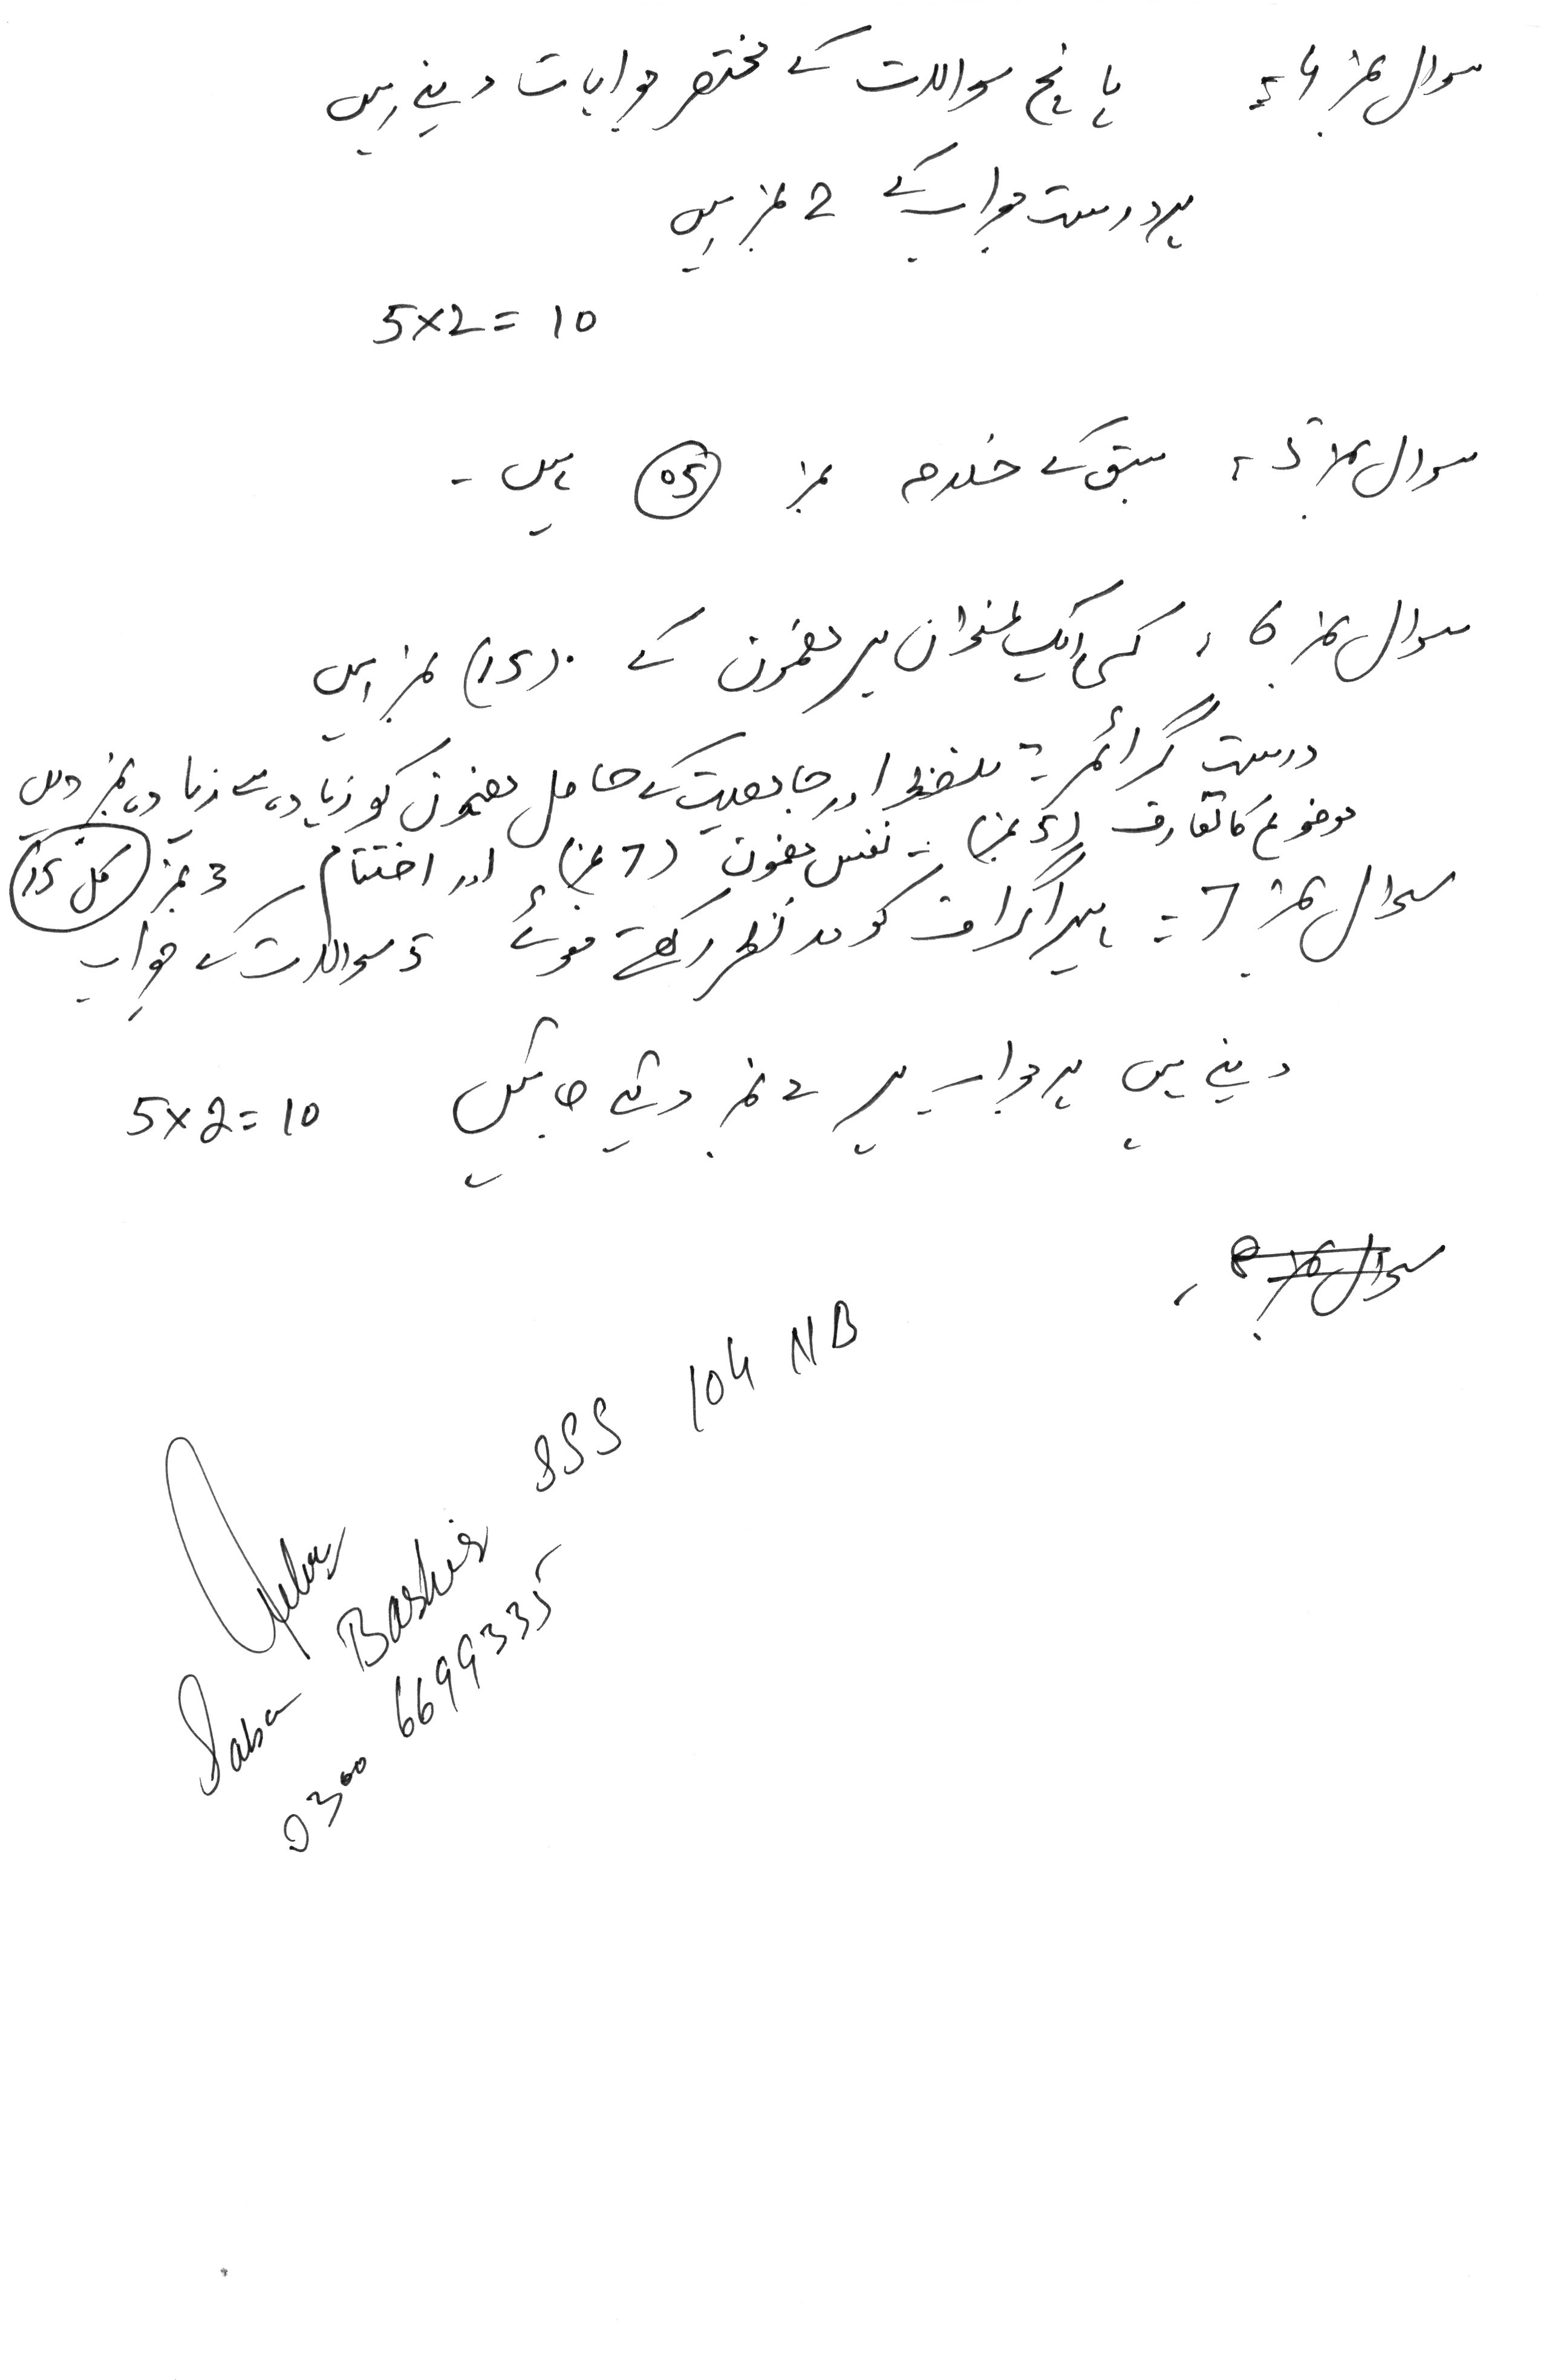 سوال نمبر 4 : پانچ سوالات کے مختصر جوابات دینے ہیں
ہر درست جواب کے 2 نمبر ہیں
5×2=10
سوال نمبر 5 : سبق کے خلاصہ نمبر 05 ہیں -
سوال نمبر 6 : کسی ایک عنوان پر مضمون کے (15) نمبر ہیں
درست گرائمر - تلفظ اور جامعیت کے حامل مضمون کو زیادہ سے زیادہ نمبر دیں
موضوع کا تعارف (5 نمبر) - نفس مضمون (7 نمبر) اور اختتام 3 نمبر کل 15
سوال نمبر 7 : پیراگراف کو مدنظر رکھتے ہوئے 5 سوالات کے جواب
دینے ہیں ہر جواب پر 2 نمبر دئیے جائیں 5×2=10
سوال نمبر 8
SSS 104 NB
Saba Bashir
0300 6699335